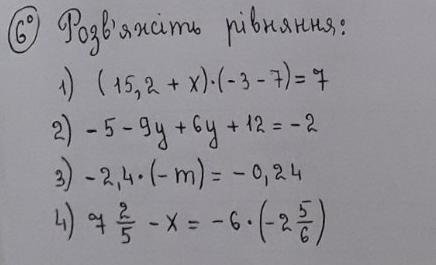 6° Розв'яжіть рівняння:
1) (15,2 + x)·(-3-7)=7
2) -5-9y+6y+12=-2
3) -2,4·(-m)=-0,24
4) 7 2/5 - x = -6·(-2 5/6)